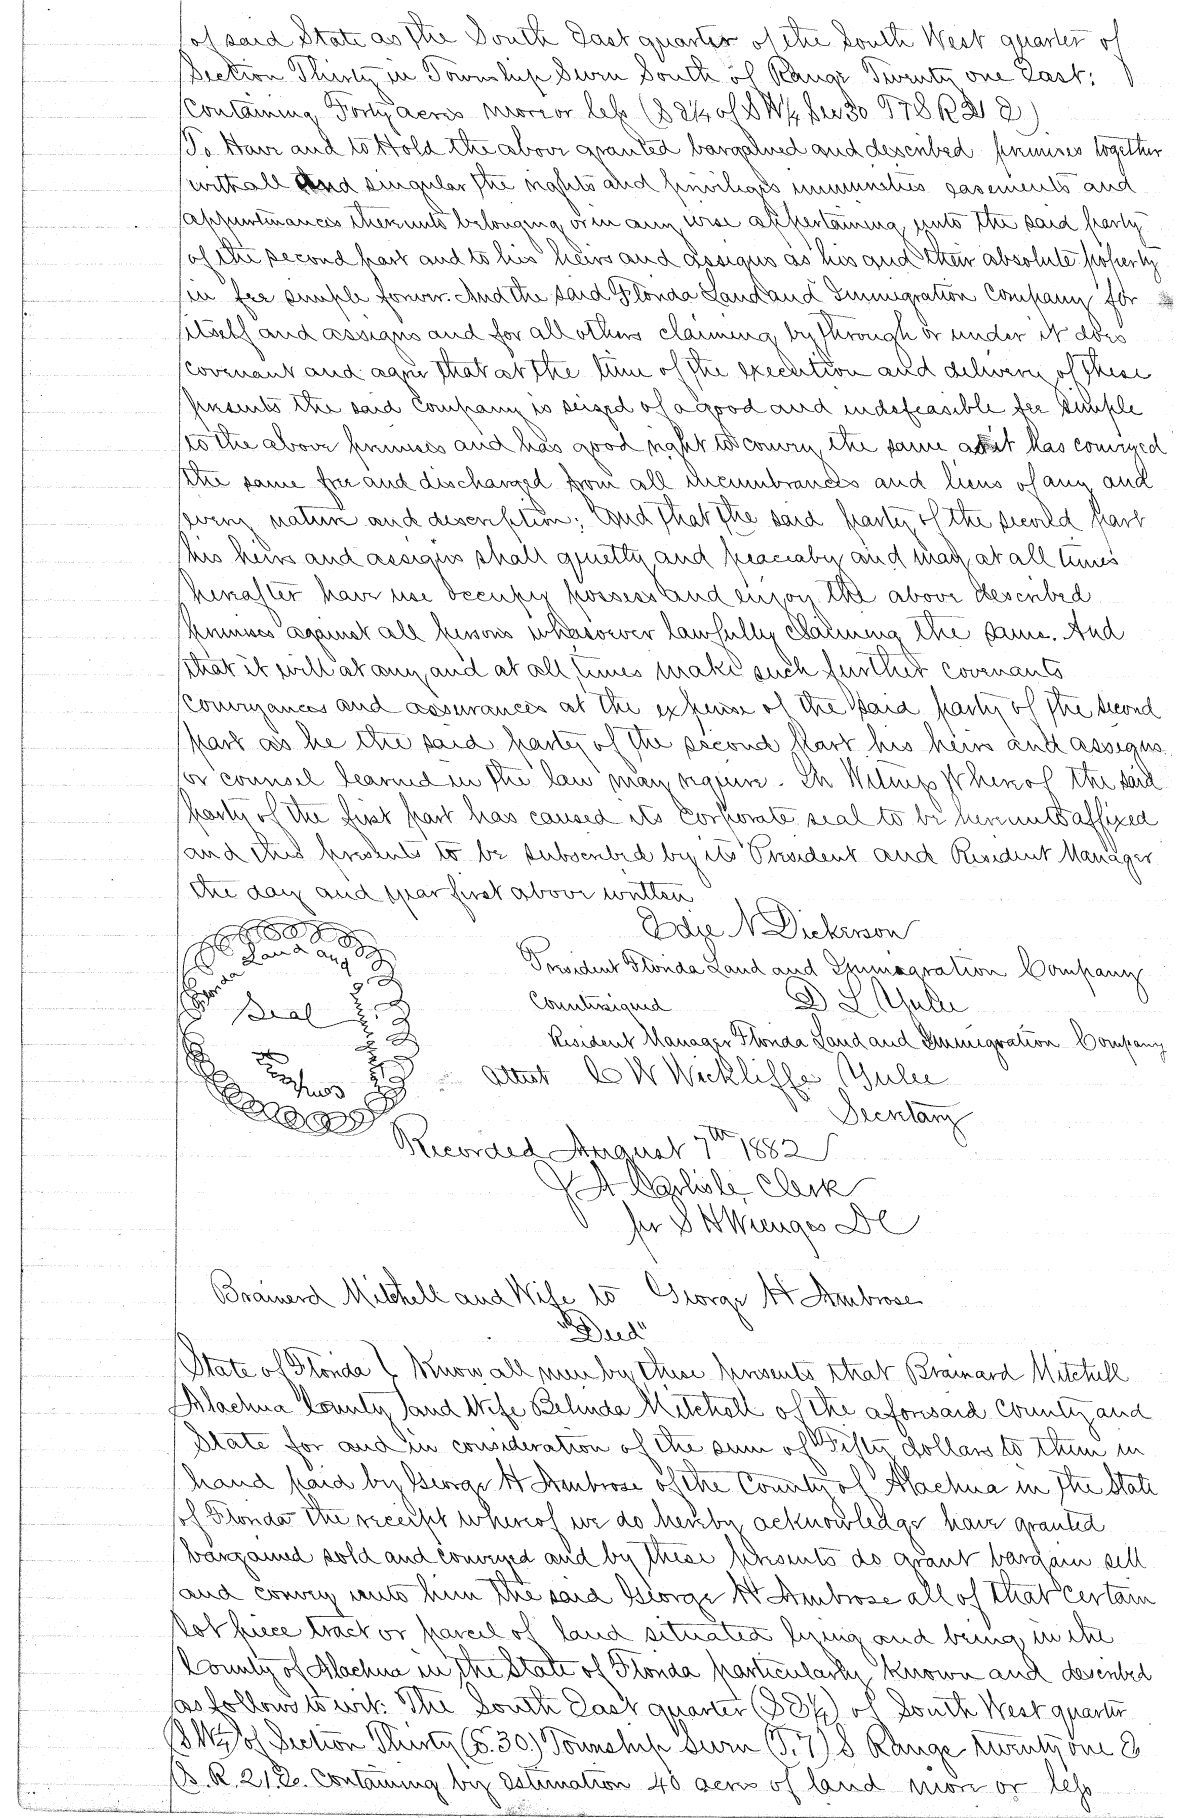 of said State as the South East quarter of the South West quarter of
Section Thirty in Township Seven South of Range Twenty one East;
Containing Forty acres more or less (S E¼ of S W¼ Sec 30 T 7 S R 21 E)
To Have and to Hold the above granted bargained and described premises together
with all and singular the rights and privileges immunities easements and
appurtenances thereunto belonging or in any wise appertaining unto the said party
of the second part and to his heirs and assigns as his and their absolute property
in fee simple forever. And the said Florida Land and Immigration Company for
itself and assigns and for all others claiming by through or under it does
covenant and agree that at the time of the execution and delivery of these
presents the said Company is seized of a good and indefeasible fee simple
to the above premises and has good right to convey the same as it has conveyed
the same free and discharged from all incumbrances and liens of any and
every nature and description; And that the said party of the second part
his heirs and assigns shall quietly and peaceaby and may at all times
hereafter have use occupy possess and enjoy the above described
premises against all persons whasoever lawfully claiming the same. And
that it will at any and at all times make such further covenants
conveyances and assurances at the expense of the said party of the second
part as he the said party of the second part his heirs and assigns
or counsel learned in the law may require. In Witness Whereof the said
party of the first part has caused its corporate seal to be hereunto affixed
and these presents to be subscribed by its President and Resident Manager
the day and year first above written
Edje N Dickerson
Florida Land and Immigration Company
Seal
President Florida Land and Immagration Company
Countersigned D L Yulee
Resident Manager Florida Land and Immigration Company
Attest C W Wickliffe Yulee
Secretary
Recorded August 7th 1882
J A Carlisle, Clerk
per S H Wienges DC
Brainerd Mitchell and Wife to George H Ambrose
"Deed"
State of Florida } Know all men by these presents that Brainard Mitchell
Alachua County } and Wife Belinda Mitchell of the aforesaid County and
State for and in consideration of the sum of Fifty dollars to them in
hand paid by George H Ambrose of the County of Alachua in the State
of Florida the receipt whereof we do hereby acknowledge have granted
bargained sold and conveyed and by these presents do grant bargain sell
and convey unto him the said George H Ambrose all of that certain
lot piece tract or parcel of land situated lying and being in the
County of Alachua in the State of Florida particularly known and described
as follows to wit: The South East quarter (S E¼) of South West quarter
S W¼ of Section Thirty (S. 30.) Township Seven (T. 7) S Range twenty one E
S. R. 21. E. Containing by estimation 40 acres of land more or less